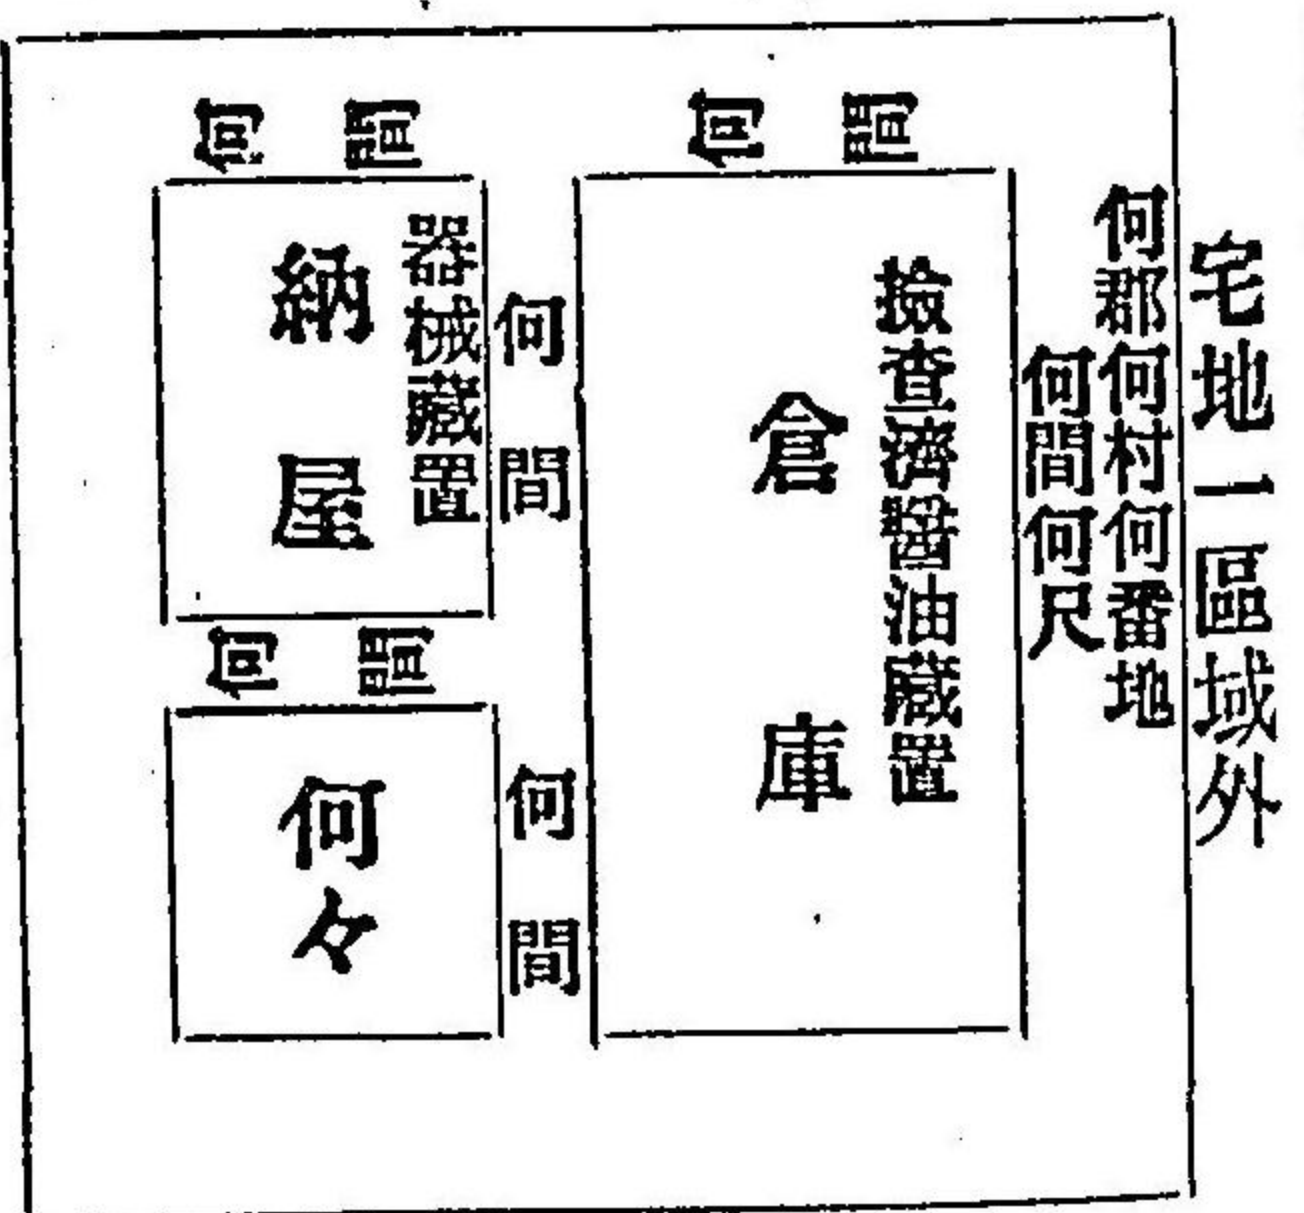 宅地一區域外
何郡何村何番地
何間何尺
何間
撿查濟醤油藏置
倉庫
何間
何間
器械藏置
納屋
何間
何間
何々